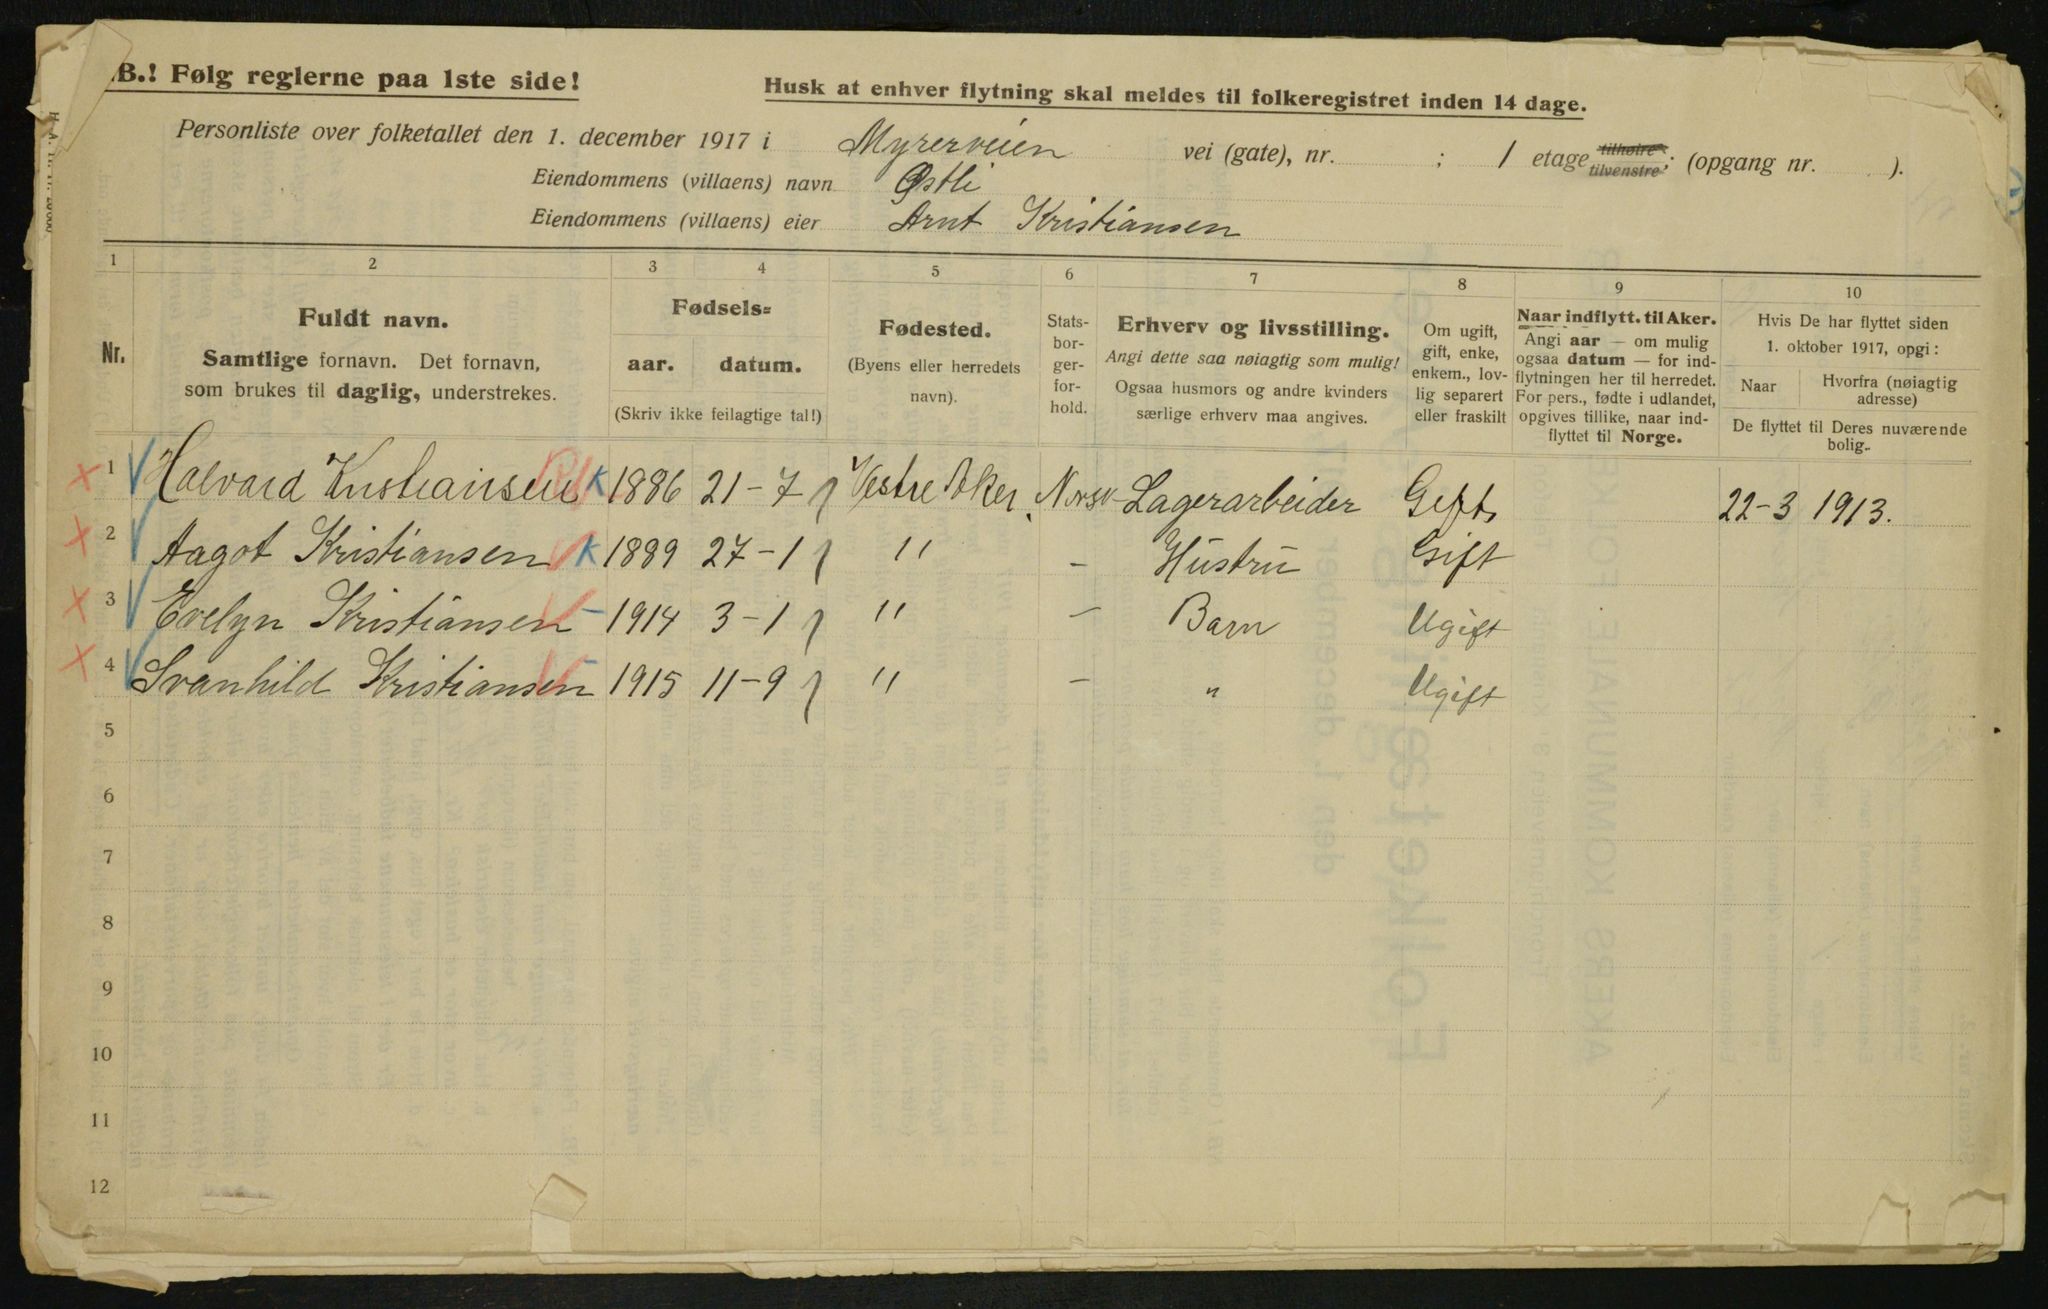 B.! Følg reglerne paa 1ste side!
Husk at enhver flytning skal meldes til folkeregistret inden 14 dage.
Personliste over folketallet den 1. december 1917 i Myrerveien vei (gate), nr. ; 1 etage tilhøire tilvenstre; (opgang nr. ).
Eiendommens (villaens) navn Østli
Eiendommens (villaens) eier Arnt Kristiansen
1 2 3 4 5 6 7 8 9 10
Nr.
Fuldt navn.
Samtlige fornavn. Det fornavn,
som brukes til daglig, understrekes.
Fødsels=
aar. datum.
(Skriv ikke feilagtige tal!)
Fødested.
(Byens eller herredets
navn).
Stats-
bor-
ger-
for-
hold.
Erhverv og livsstilling.
Angi dette saa nøiagtig som mulig!
Ogsaa husmors og andre kvinders
særlige erhverv maa angives.
Om ugift,
gift, enke,
enkem., lov-
lig separert
eller fraskilt
Naar indflytt. til Aker.
Angi aar — om mulig
ogsaa datum — for ind-
flytningen her til herredet.
For pers., fødte i udlandet,
opgives tillike, naar ind-
flyttet til Norge.
Hvis De har flyttet siden
1. oktober 1917, opgi:
Naar
Hvorfra (nøiagtig
adresse)
De flyttet til Deres nuværende
bolig.
1 Halvard Kristiansen K 1886 21-7 Vestre Aker Norsk Lagerarbeider Gift 22-3 1913.
2 Aagot Kristiansen K 1889 27-1 " - Hustru Gift
3 Evelyn Kristiansen - 1914 3-1 " - Barn Ugift
4 Svanhild Kristiansen - 1915 11-9 " - " Ugift
5
6
7
8
9
10
11
12